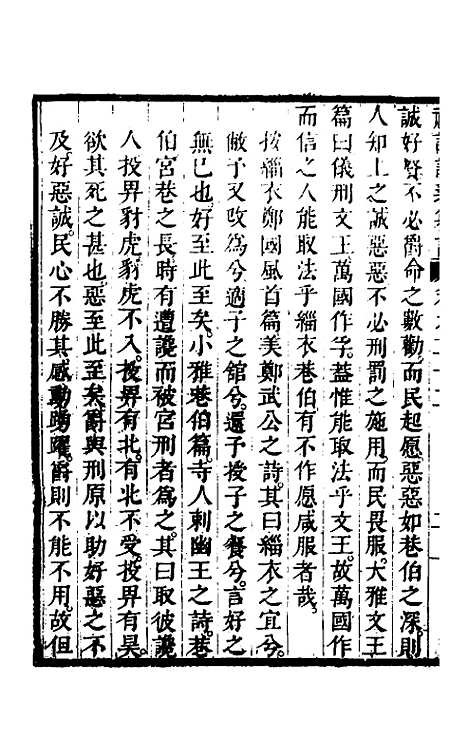 誠好賢不必爵命之數勸而民起愿惡惡如巷伯之深則
人知上之誠惡惡不必刑罰之施用而民畏服大雅文王
篇曰儀刑文王萬國作孚蓋惟能取法乎文王故萬國作
而信之人能取法乎緇衣巷伯有不作愿咸服者哉
按緇衣鄭國風首篇美鄭武公之詩其曰緇衣之宜兮
敝予又改爲兮適子之館兮還予授子之餐兮言好之
無已也好至此至矣小雅巷伯篇寺人刺幽王之詩巷
伯宮巷之長時有遭讒而被宮刑者爲之其曰取彼讒
人投畀豺虎豺虎不入投畀有北有北不受投畀有昊
欲其死之甚也惡至此至矣爵與刑原以助好惡之不
及好惡誠民心不勝其感動踴躍爵則不能不用故但